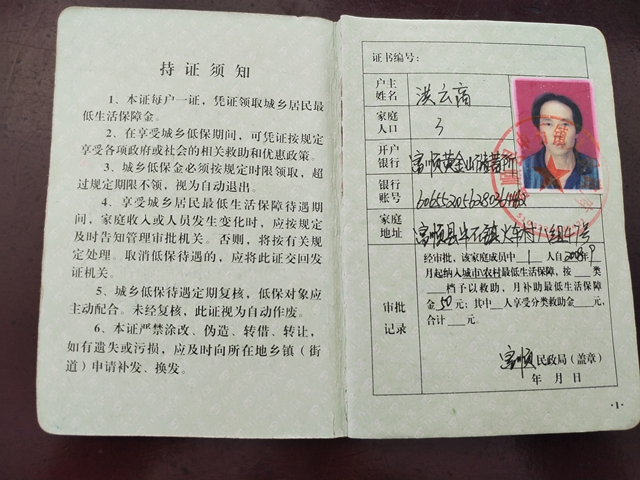 持证须知
1、本证每户一证，凭证领取城乡居民最
低生活保障金。
2、在享受城乡低保期间，可凭证按规定
享受各项政府或社会的相关救助和优惠政策。
3、城乡低保金必须按规定时限领取，超
过规定期限不领，视为自动退出。
4、享受城乡居民最低生活保障待遇期
间，家庭收入或人员发生变化时，应按规定
及时告知管理审批机关。否则，将按有关规
定处理。取消低保待遇的，应将此证交回发
证机关。
5、城乡低保待遇定期复核，低保对象应
主动配合。未经复核，此证视为自动作废。
6、本证严禁涂改、伪造、转借、转让，
如有遗失或污损，应及时向所在地乡镇（街
道）申请补发、换发。
证书编号：
户主
姓名
洪云高
家庭
人口
3
开户
银行
富顺黄金山储蓄所
银行
账号
家庭
地址
富顺县牛石镇火车村八组47号
审批
记录
经审批，该家庭成员中1人自2008年9
月起纳入城市\农村最低生活保障，按 类
档予以救助，月补助最低生活保障
金50元；其中 人享受分类救助金 元，
合计 元。
富顺民政局（盖章）
年 月 日
·1·